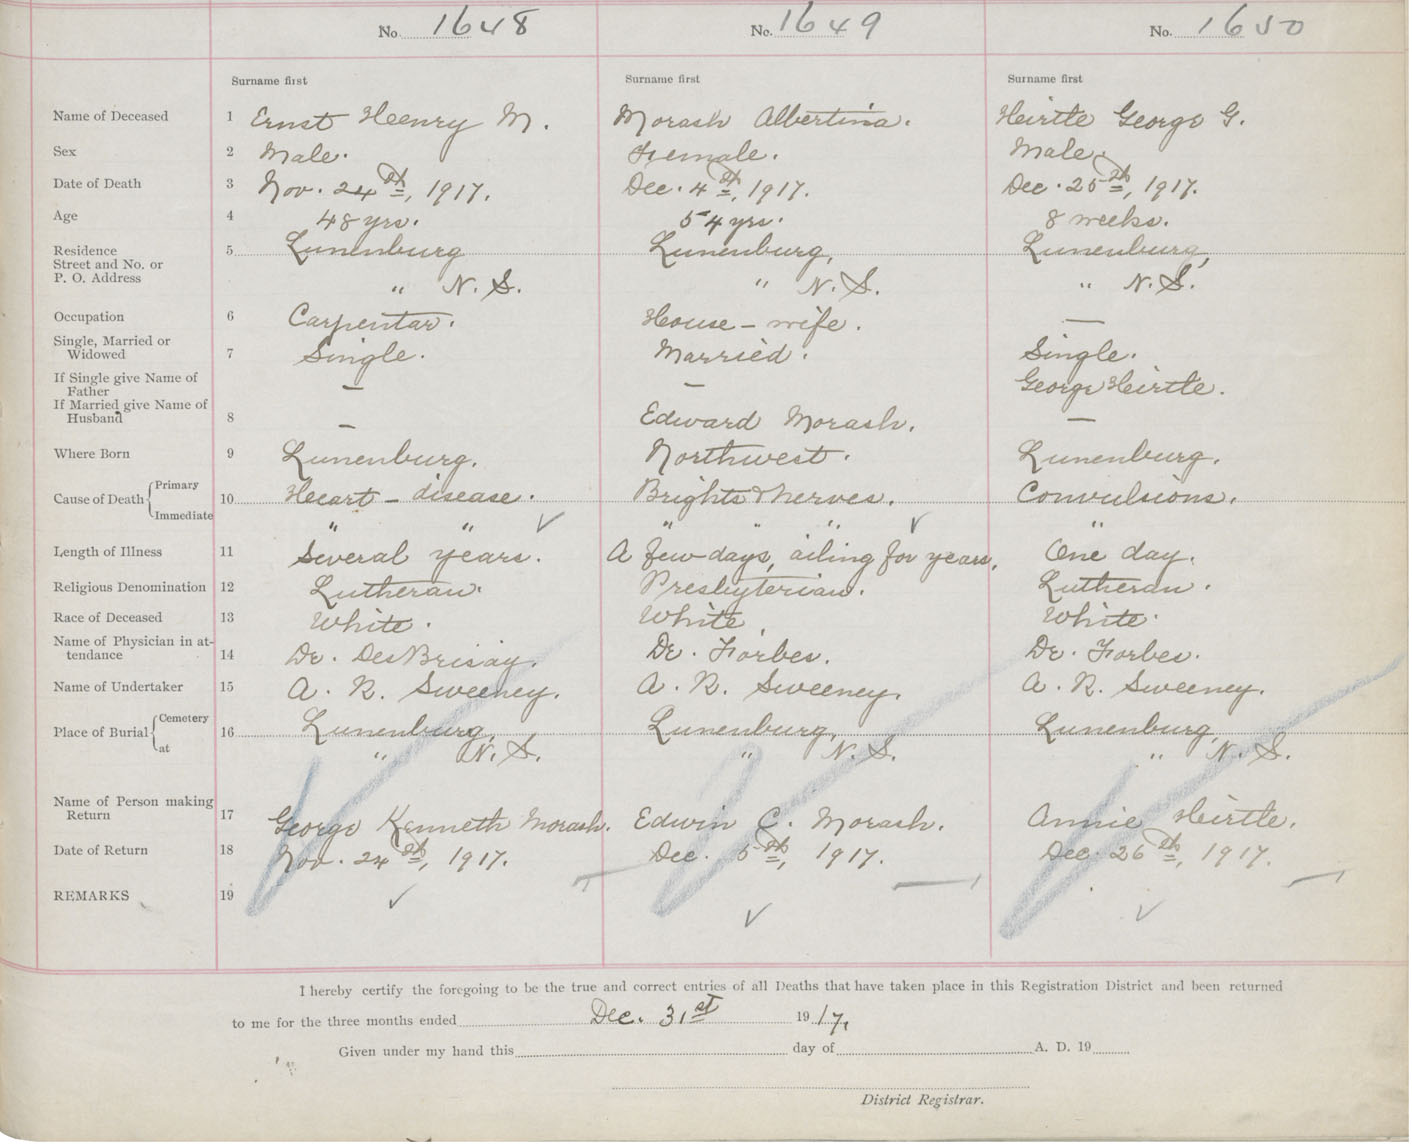 No. 1648 No. 1649 No. 1650
Surname first Surname first Surname first
Name of Deceased 1 Ernst Henry M. Morash Albertina. Heirtle George G.
Sex 2 Male. Female. Male.
Date of Death 3 Nov. 24th, 1917. Dec. 4th, 1917. Dec. 25th, 1917.
Age 4 48 yrs. 54 yrs. 8 weeks.
Residence 5 Lunenburg Lunenburg, Lunenburg,
Street and No. or
P. O. Address " N. S. " N. S. " N. S.
Occupation 6 Carpentar. House - wife. —
Single, Married or
Widowed 7 Single. Married. Single.
If Single give Name of
Father — — George Heirtle.
If Married give Name of
Husband 8 — Edward Morash. —
Where Born 9 Lunenburg. Northwest. Lunenburg.
Cause of Death Primary 10 Heart - disease. Brights & nerves. Convulsions.
Immediate " " " " " "
Length of Illness 11 Several years. A few days, ailing for years. One day.
Religious Denomination 12 Lutheran. Presbyterian. Lutheran.
Race of Deceased 13 White. White. White.
Name of Physician in at-
tendance 14 Dr. DesBrisay. Dr. Forbes. Dr. Forbes.
Name of Undertaker 15 A. R. Sweeney. A. R. Sweeney. A. R. Sweeney.
Place of Burial Cemetery 16 Lunenburg, Lunenburg, Lunenburg,
at " N. S. " N. S. " N. S.
Name of Person making
Return 17 George Kenneth Morash. Edwin C. Morash. Annie Heirtle.
Date of Return 18 Nov. 24th, 1917. Dec. 5th, 1917. Dec. 26th, 1917.
REMARKS 19
I hereby certify the foregoing to be the true and correct entries of all Deaths that have taken place in this Registration District and been returned
to me for the three months ended Dec. 31st 1917,
Given under my hand this day of A. D. 19
District Registrar.